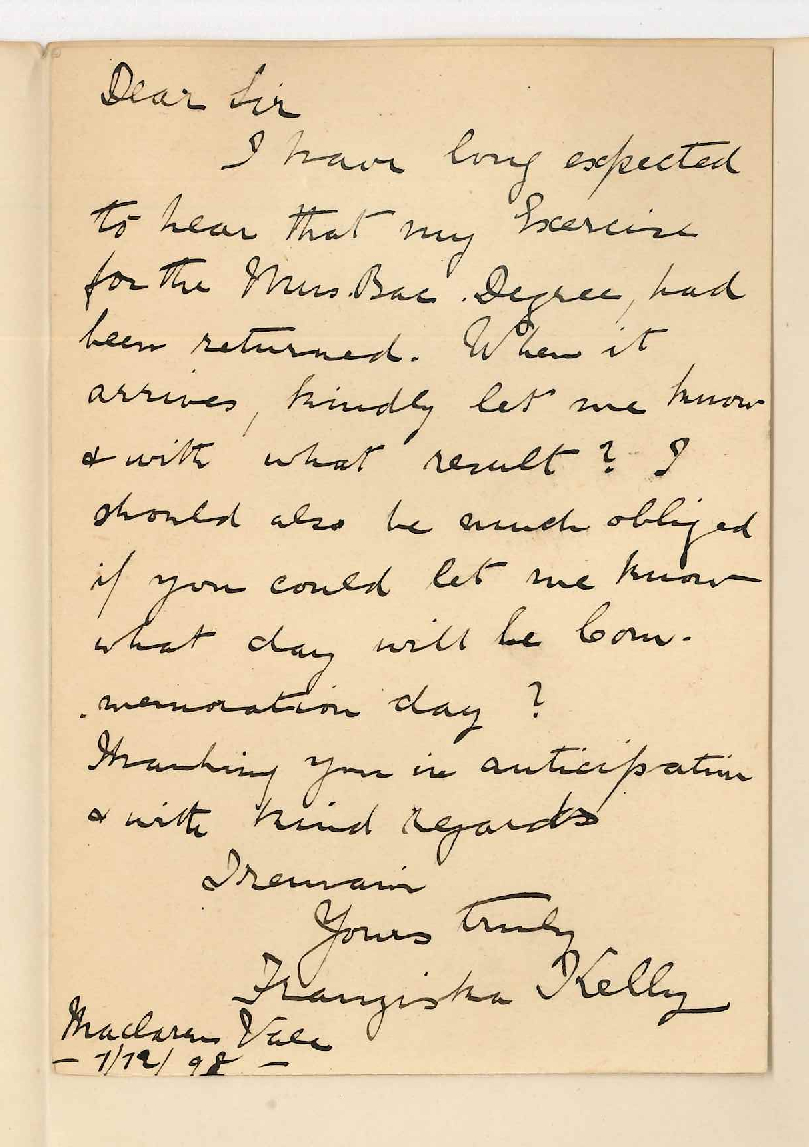 Dear Sir
I have long expected
to hear that my Exercise
for the Mus. Bac. Degree, had
been returned. When it
arrives, kindly let me know
& with what result? I
should also be much obliged
if you could let me know
what day will be Com-
-memoration day?
Thanking you in anticipation
& with kind regards
I remain
Yours truly
Franziska Kelly
Maclaren Vale
- 7/12/98 -